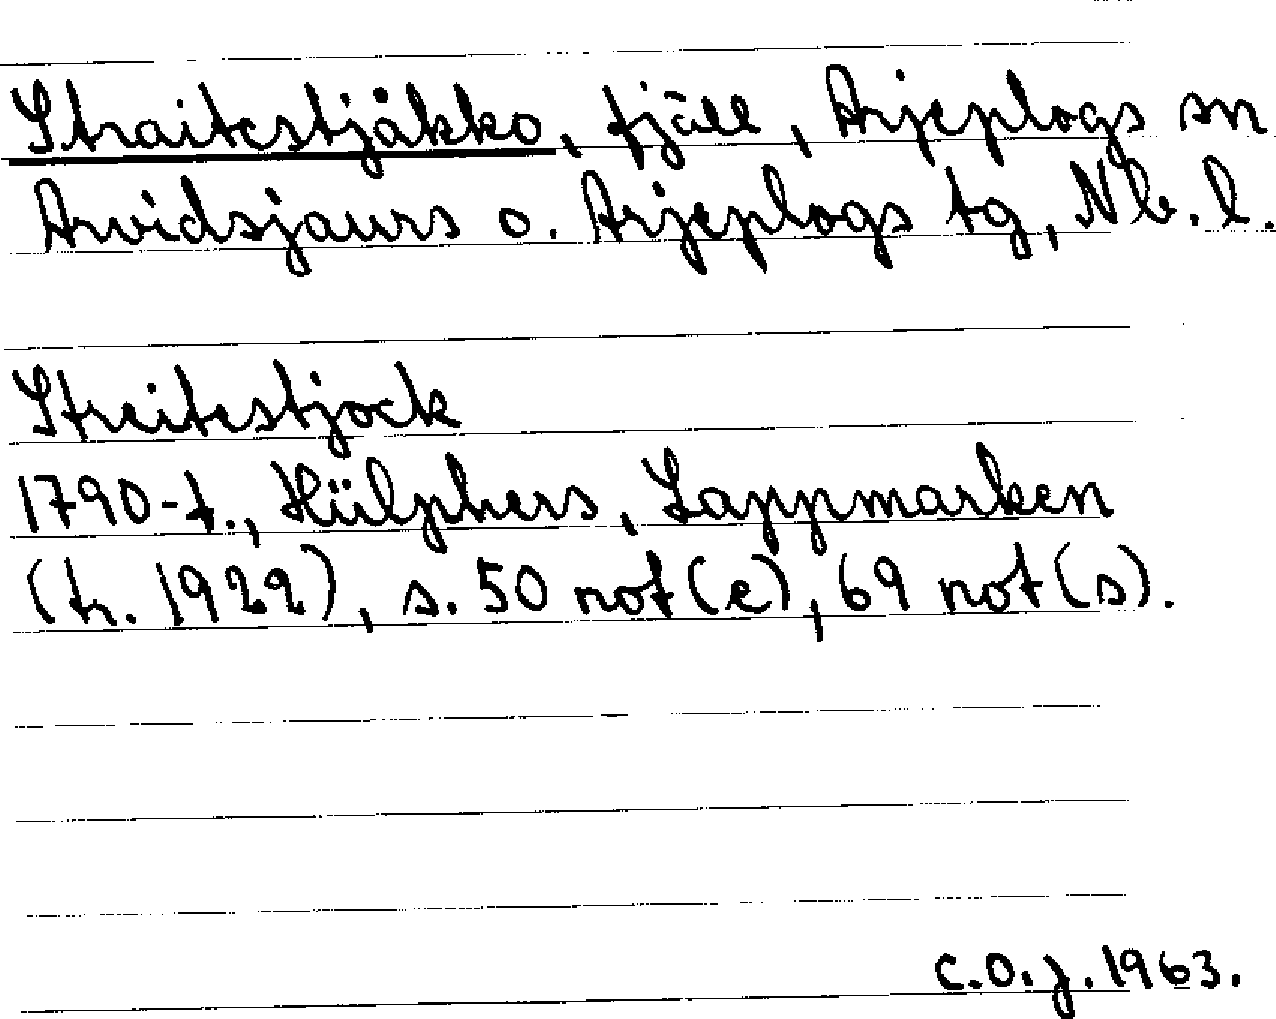 Straitestjåkko, fjäll, Arjeplogs sn
Arvidsjaurs o. Arjeplogs tg, Nb. l.
Streitestjock
1790-t., Hülphers, Lappmarken
(tr. 1922), s. 50 not(e), 69 not(s).
C.O.J. 1963.